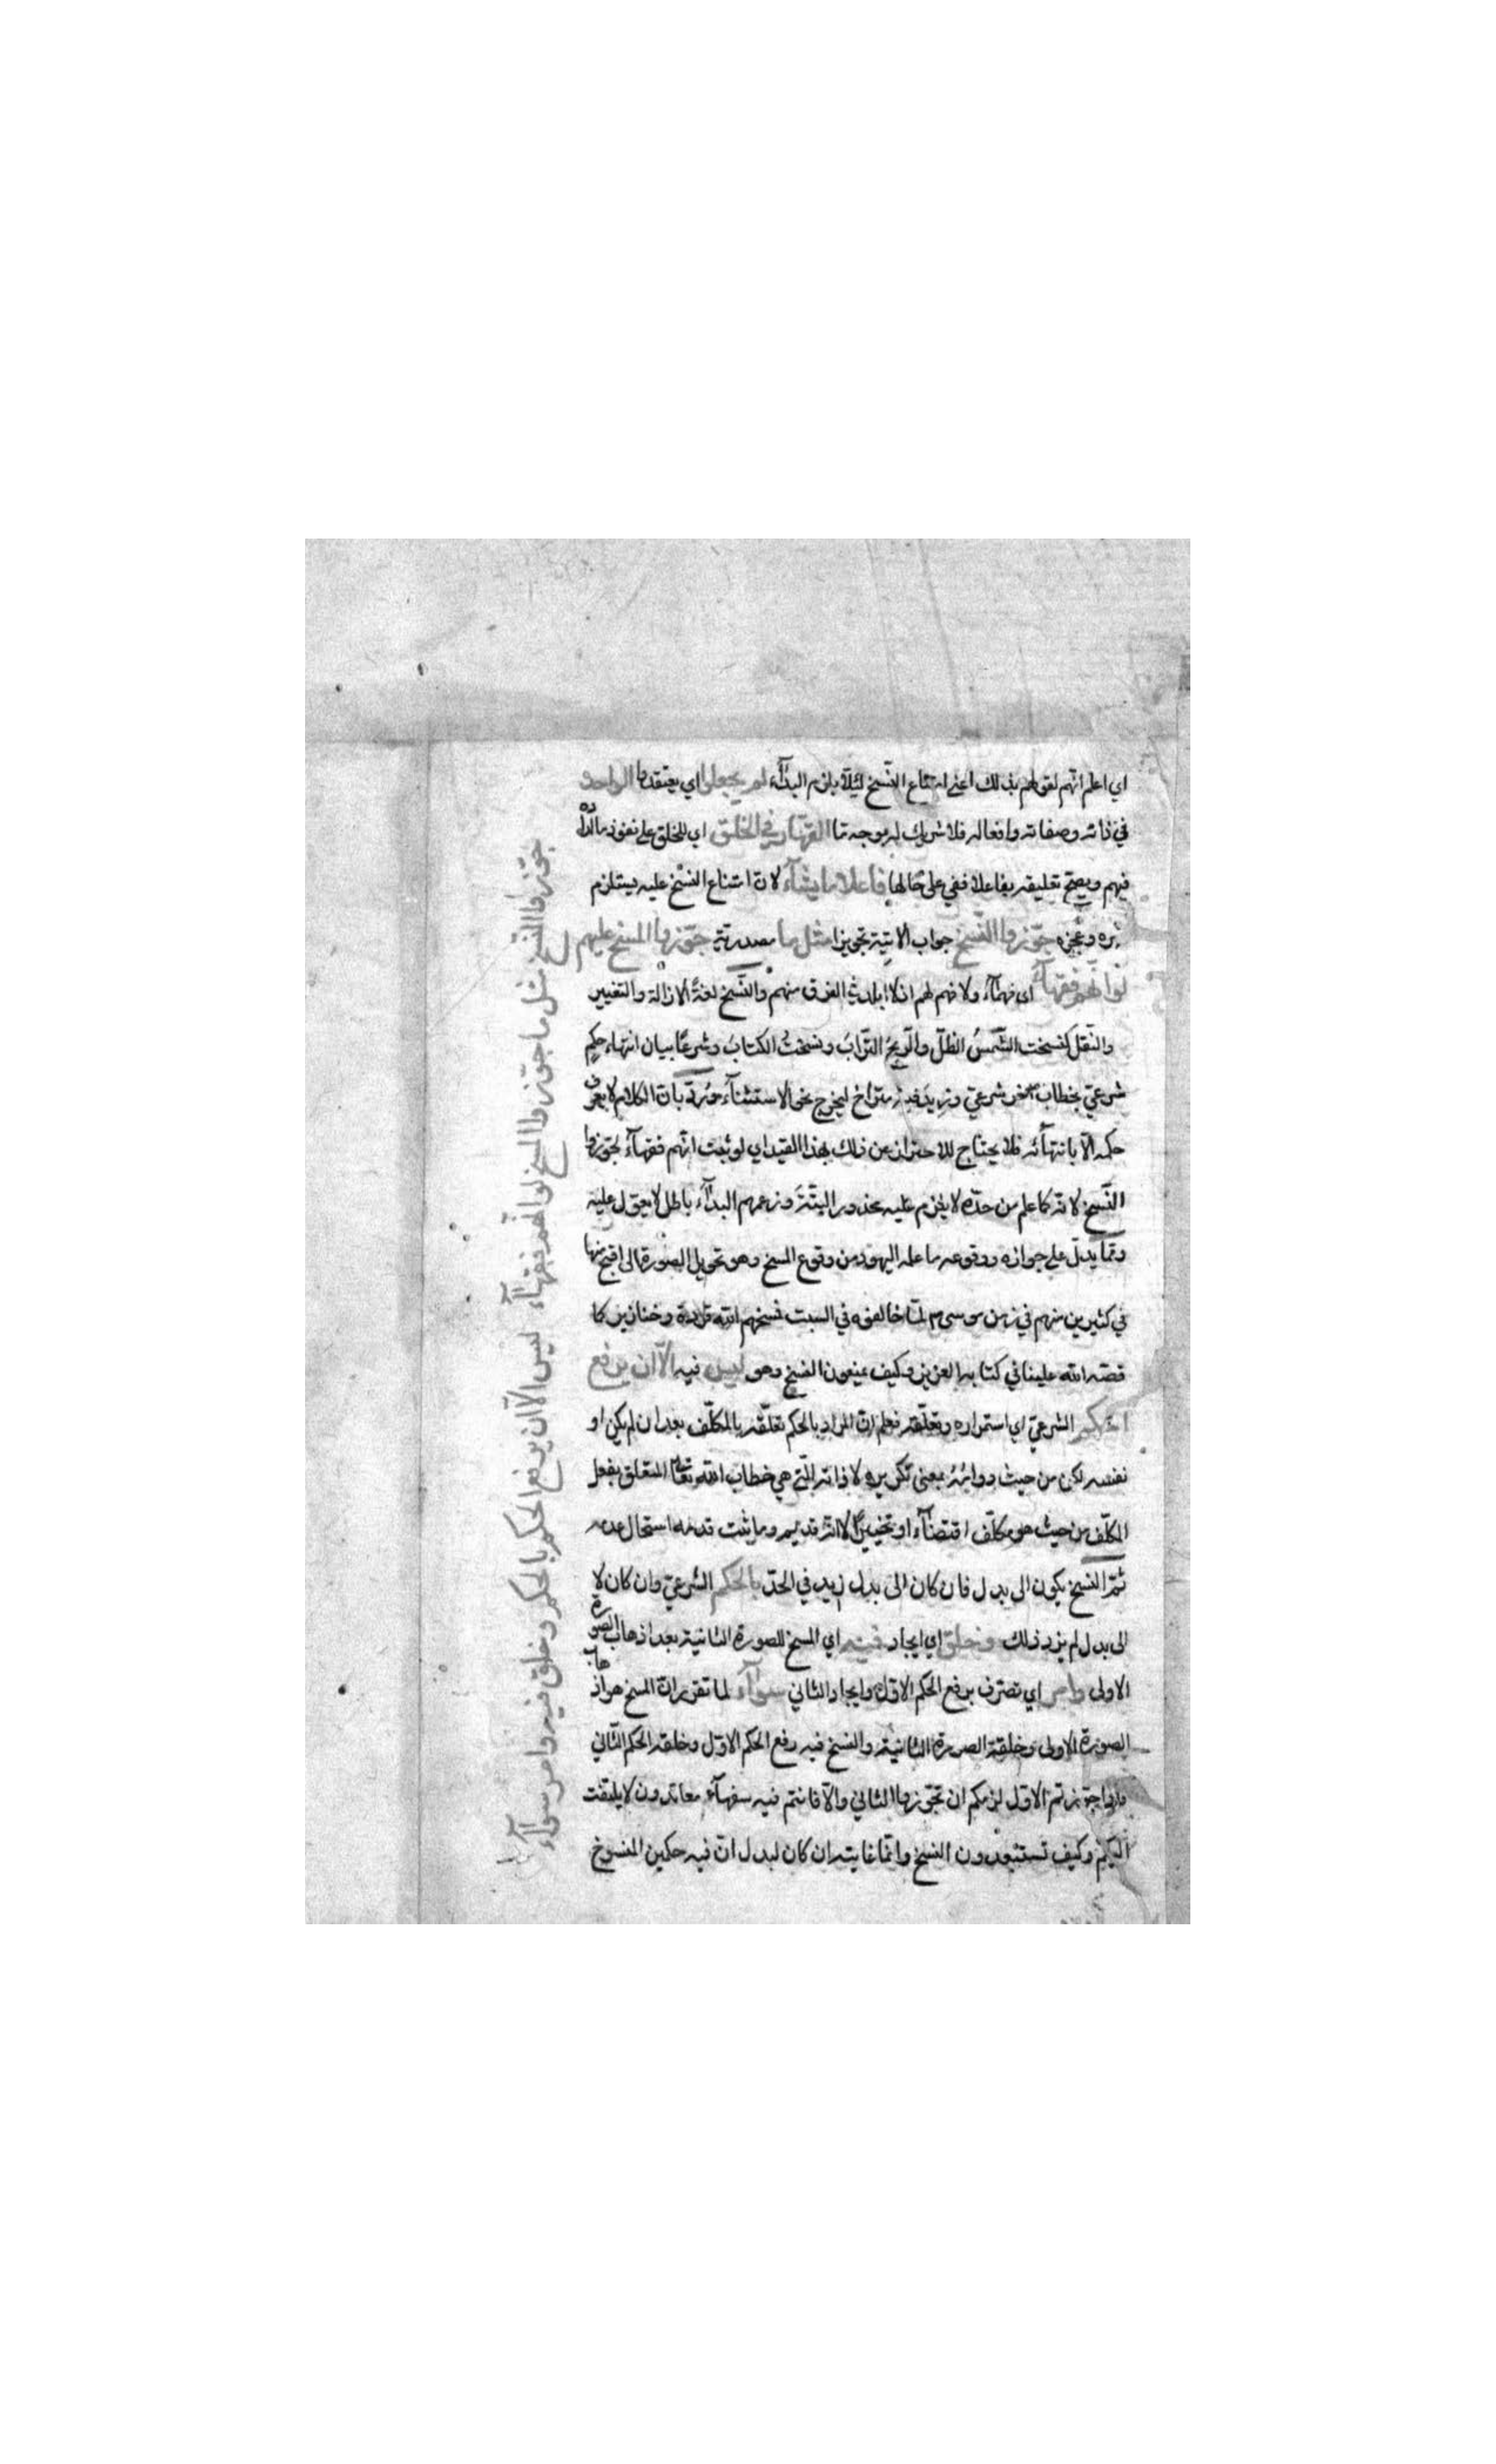 اي اعلم انّهم لقولهم بذلك اعني امتناع النّسخ لئِلّا يلزم البداء لم يجعلوا اي يعتقدوا الواحد
في ذاته وصفاته وافعاله فلا شريك له بوجه ما القهّار في الخلق اي للخلق على نفوذ ما اراده
فيهم ويصح تعليقه بفاعلا ففي على حالها فاعلا ما يشآء لانّ امتناع النسْخ عليه يستلزم
وعجزه جوّزوا النّسخ جواب الاتية تجويزا مثل ما مصدريّة جوّزوا المسخ عليهم
لو انّهم فقهآء اي فهمآء ولا فهم لهم اذ لا ابلد في الفرق منهم والنّسخ لغةً الازالة والتغيير
والنّقل كنسخت الشّمسُ الظلّ والرّيحُ التّرابَ ونسختُ الكتابَ وشرعًا بيان انتهاء حكمٍ
شرعيّ بخطاب شرعيّ وزيد فيه متراخ ليخرج نحو الاستثنآء ورُدّ بانّ الكلام لا يعرف
حكمه الّا بانتهآئه فلا يحتاج للاحتراز عن ذلك بهذا القيد اي لو ثبت انّهم فقهآء لجوّزوا
النّسخ لانّه كما علم من حدّه لا يلزم عليه محذور البتّة وزعمهم البدآء باطل لا يعوّل عليه
وممّا يدلّ على جوازه ووقوعه ما علمه اليهود من وقوع المسخ وهو تحويل الصورة الى اقبح منها
في كثيرين منهم في زمن موسى م لمّا خالفوه في السبت فمسخهم الله قردة وخنازير كما
قصّه الله علينا في كتابه العزيز وكيف يمنعون النسخ وهو ليس فيه الّا ان يرفع
الحكم الشرعيّ اي استمراره وتعلّقه فعلم انّ المراد بالحكم تعلّقه بالمكلّف بعد ان لم يكن او
نفسه لكن من حيث دوامُه بمعنى تكريره لا ذاته الّتي هي خطاب الله تعالى المتعلق بفعل
المكلّف من حيث هو مكلّف اقتضآء او تخييرًا لانّه قديم وما ثبت قدمه استحال عدمه
ثمّ النسخ يكون الى بدل فان كان الى بدل زيد في الحدّ بالحكم الشرعيّ وان كان لا
الى بدل لم يزد ذلك وخلق اي ايجاد فيه اي المسخ للصورة الثانية بعد اذهاب الصورة
الاولى وامر اي تصرّف برفع الحكم الاوّل وايجاد الثاني سوآء لما تقرر انّ المسخ هو اذهاب
الصورة الاولى وخلقة الصورة الثانية والنسخ فيه رفع الحكم الاوّل وخلقه الحكم الثّاني
فاذا جوّزتم الاوّل لزمكم ان تجوّزوا الثاني والّا فانتم فيه سفهآء معاندون لا يلتفت
اليكم وكيف تستبعدون النسخ وانّما غايته ان كان لبدل انّ فيه حكمين المنسوخ
جوّزوا النّسخ مثل ما جوّزوا المسخ لو انّهم فقهآء ليس الّا ان يرفع الحكم بالحكم وخلق فيه وامر سوآء